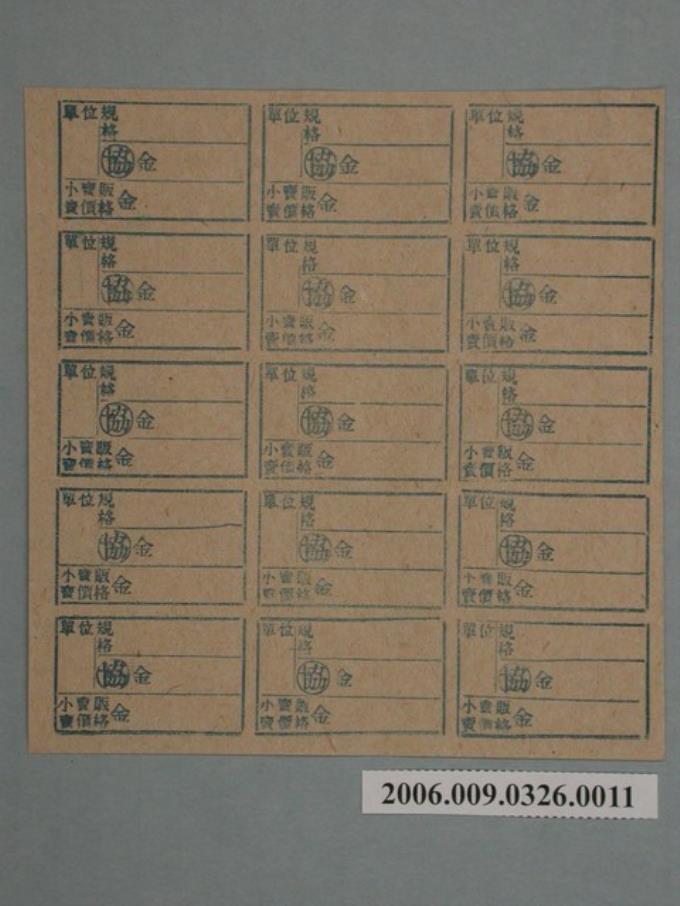 單位規
格
協金
小賣販
賣價格金
單位規
格
協金
小賣販
賣價格金
單位規
格
協金
小賣販
賣價格金
單位規
格
協金
小賣販
賣價格金
單位規
格
協金
小賣販
賣價格金
單位規
格
協金
小賣販
賣價格金
單位規
格
協金
小賣販
賣價格金
單位規
格
協金
小賣販
賣價格金
單位規
格
協金
小賣販
賣價格金
單位規
格
協金
小賣販
賣價格金
單位規
格
協金
小賣販
賣價格金
單位規
格
協金
小賣販
賣價格金
單位規
格
協金
小賣販
賣價格金
單位規
格
協金
小賣販
賣價格金
單位規
格
協金
小賣販
賣價格金
2006.009.0326.0011